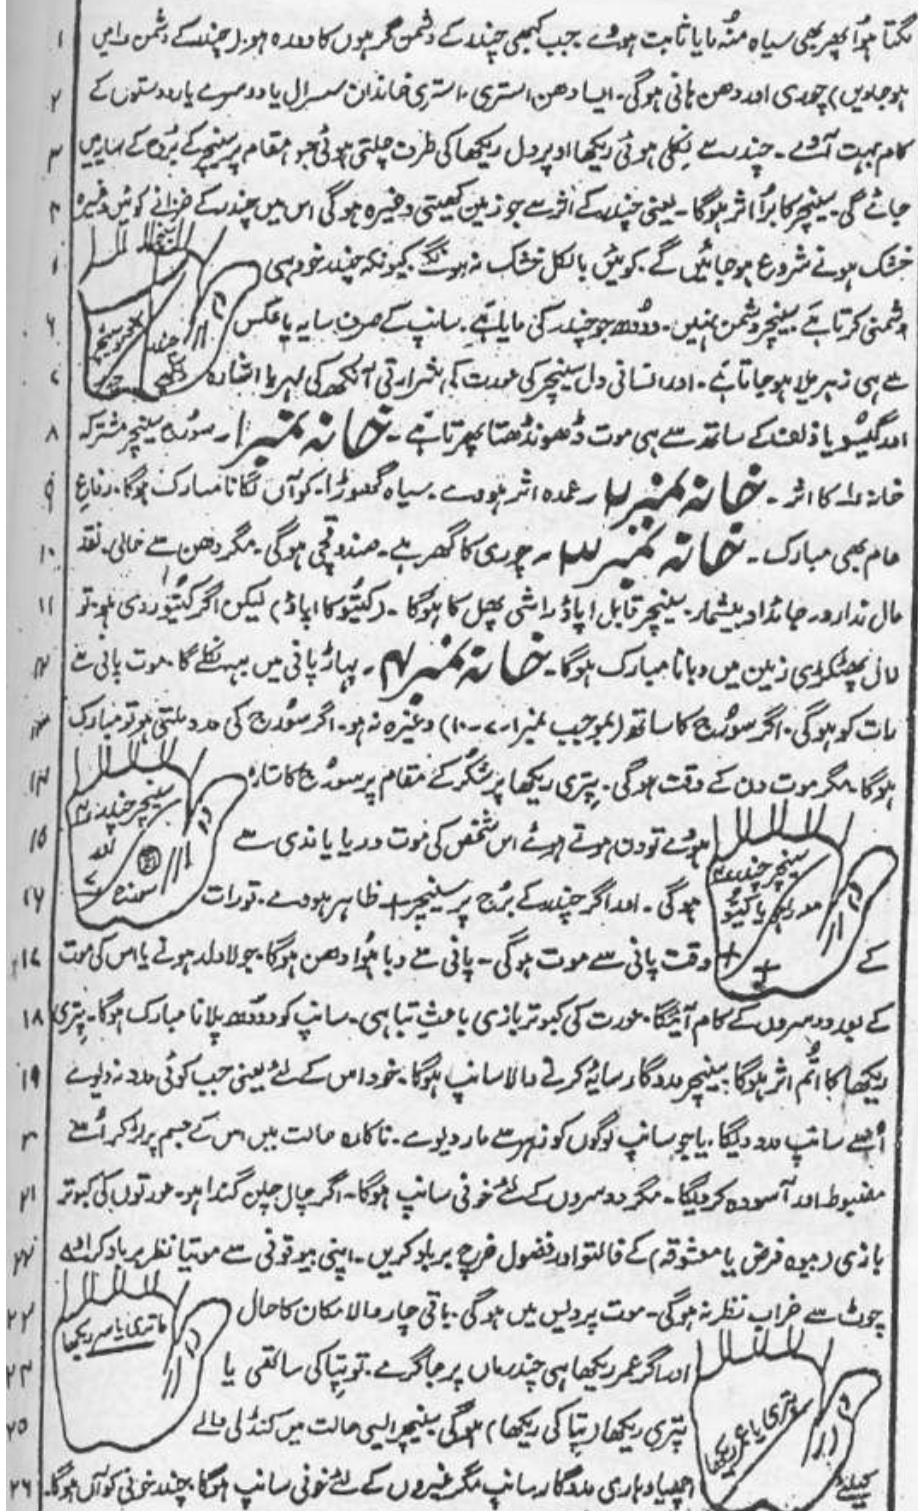 نکتا ہوا پھر بھی سیاہ منہ مایا ثابت ہووے۔ جب کبھی چندر کے دشمن گرہوں کا دورہ ہو (چندر کے دشمن اس میں ۱
ہو جاویں) چوری اور دھن ہانی ہوگی۔ ایسا دھن استری، استری خاندان سسرال یا دوسرے یار دوستوں کے ۲
کام بہت آوے۔ چندر سے نکلی ہوئی ریکھا اوپر دل ریکھا کی طرف چلتی ہوئی جو مقام پر سنیچر کے برج کے سایہ میں ۳
جائے گی۔ سنیچر کا برا اثر ہوگا۔ یعنی چندر کے اثر سے جو زمین کھیتی وغیرہ ہوگی اس میں چندر کے خزانے کوئیں وغیرہ ۴
خشک ہونے شروع ہو جائیں گے۔ کوئیں بالکل خشک نہ ہونگے کیونکہ چندر خود ہی
دشمنی کرتا ہے۔ سنیچر دشمن نہیں۔ دودھ جو چندر کی مایا ہے۔ سانپ کے صرف سایہ یا عکس ۶
سے ہی زہریلا ہو جاتا ہے۔ اور انسانی دل سنیچر کی عورت کی شرارتی آنکھ کی لہر یا اشارہ ۷
اور گیسو یا زلف کے ساتھ سے ہی موت ڈھونڈھتا پھرتا ہے۔ خانہ نمبر ۱۔ سورج سنیچر مشترکہ ۸
خانہ ۱ کا اثر۔ خانہ نمبر ۲ ۔ عمدہ اثر ہووے۔ سیاہ گھوڑا۔ کوآں لگانا مبارک ہوگا۔ رفاع ۹
عام بھی مبارک۔ خانہ نمبر ۳۔ چوری کا گھر ہے۔ صندوقچی ہوگی۔ مگر دھن سے خالی۔ نقد ۱۰
مال ندارد جائداد بیشمار۔ سنیچر قابل اپاؤ راشی پھل کا ہوگا۔ (کیتو کا اپاؤ) لیکن اگر کیتو ردی ہو تو ۱۱
لال پھٹکڑی زمین میں دبانا مبارک ہوگا۔ خانہ نمبر ۴۔ پہاڑ پانی میں بہہ نکلے گا۔ موت پانی سے ۱۲
رات کو ہوگی۔ اگر سورج کا ساتھ (بموجب نمبر ۱۔۷۔۱۰) وغیرہ نہ ہو۔ اگر سورج کی مدد ملتی ہو تو مبارک ۱۳
ہوگا۔ مگر موت دن کے وقت ہوگی۔ پتری ریکھا پر شکر کے مقام پر سورج کا ستارہ ۱۴
ہووے تو دن ہوتے ہوئے اس شخص کی موت دریا یا ندی سے ۱۵
ہوگی۔ اور اگر چندر کے برج پر سنیچر + ظاہر ہووے۔ تو رات ۱۶
کے وقت پانی سے موت ہوگی۔ پانی سے دبا ہوا دھن ہوگا۔ جو لاولد ہونے یا اس کی موت ۱۷
کے بعد دوسروں کے کام آئیگا۔ عورت کی کبوتر بازی باعث تباہی۔ سانپ کو دودھ پلانا مبارک ہوگا۔ پتری ۱۸
ریکھا کا اتم اثر ہوگا۔ سنیچر مددگار سایہ کرنے والا سانپ ہوگا۔ خود اس کے لئے یعنی جب کوئی مدد نہ دیوے ۱۹
اسے سانپ مدد دیگا۔ یا جو سانپ لوگوں کو زہر سے مار دیوے۔ ناکارہ حالت میں اس کے جسم پر لڑ کر اسے
مضبوط اور آسودہ کر دیگا۔ مگر دوسروں کے لئے خونی سانپ ہوگا۔ اگر چال چلن گندا ہو۔ عورتوں کی کبوتر ۲۱
بازی (بیوہ فرض یا معشوقہ) کے فالتو اور فضول خرچ برباد کریں۔ اپنی بیوقوفی سے موتیا نظر برباد کرائے ۲۲
چوٹ سے خراب نظر نہ ہوگی۔ موت پردیس میں ہوگی۔ باقی چار والا مکان کا حال
اور اگر عمر ریکھا ہی چندرماں پر جا گرے۔ تو پتا کی ساتھی یا
پتری ریکھا (پتا کی ریکھا) ہوگی سنیچر ایسی حالت میں کنڈلی والے ۲۵
کیلئے اچھیادہاری مددگار سانپ مگر غیروں کے لئے خونی سانپ ہوگا۔ چندر خونی کوآں ہوگا۔ ۲۶
سنیچر
چندر
سنیچر چندر ۴
سمندر
سنیچر چندر ۴
مدد راہو یا کیتو
ماتری یا سر ریکھا
پتری یا عمر ریکھا